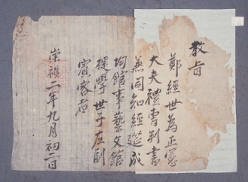 教旨
鄭經世爲正憲
大夫禮曹判書
兼同知經筵成
均館事藝文館
提學世子左副
賓客者
崇禎二年九月初二日